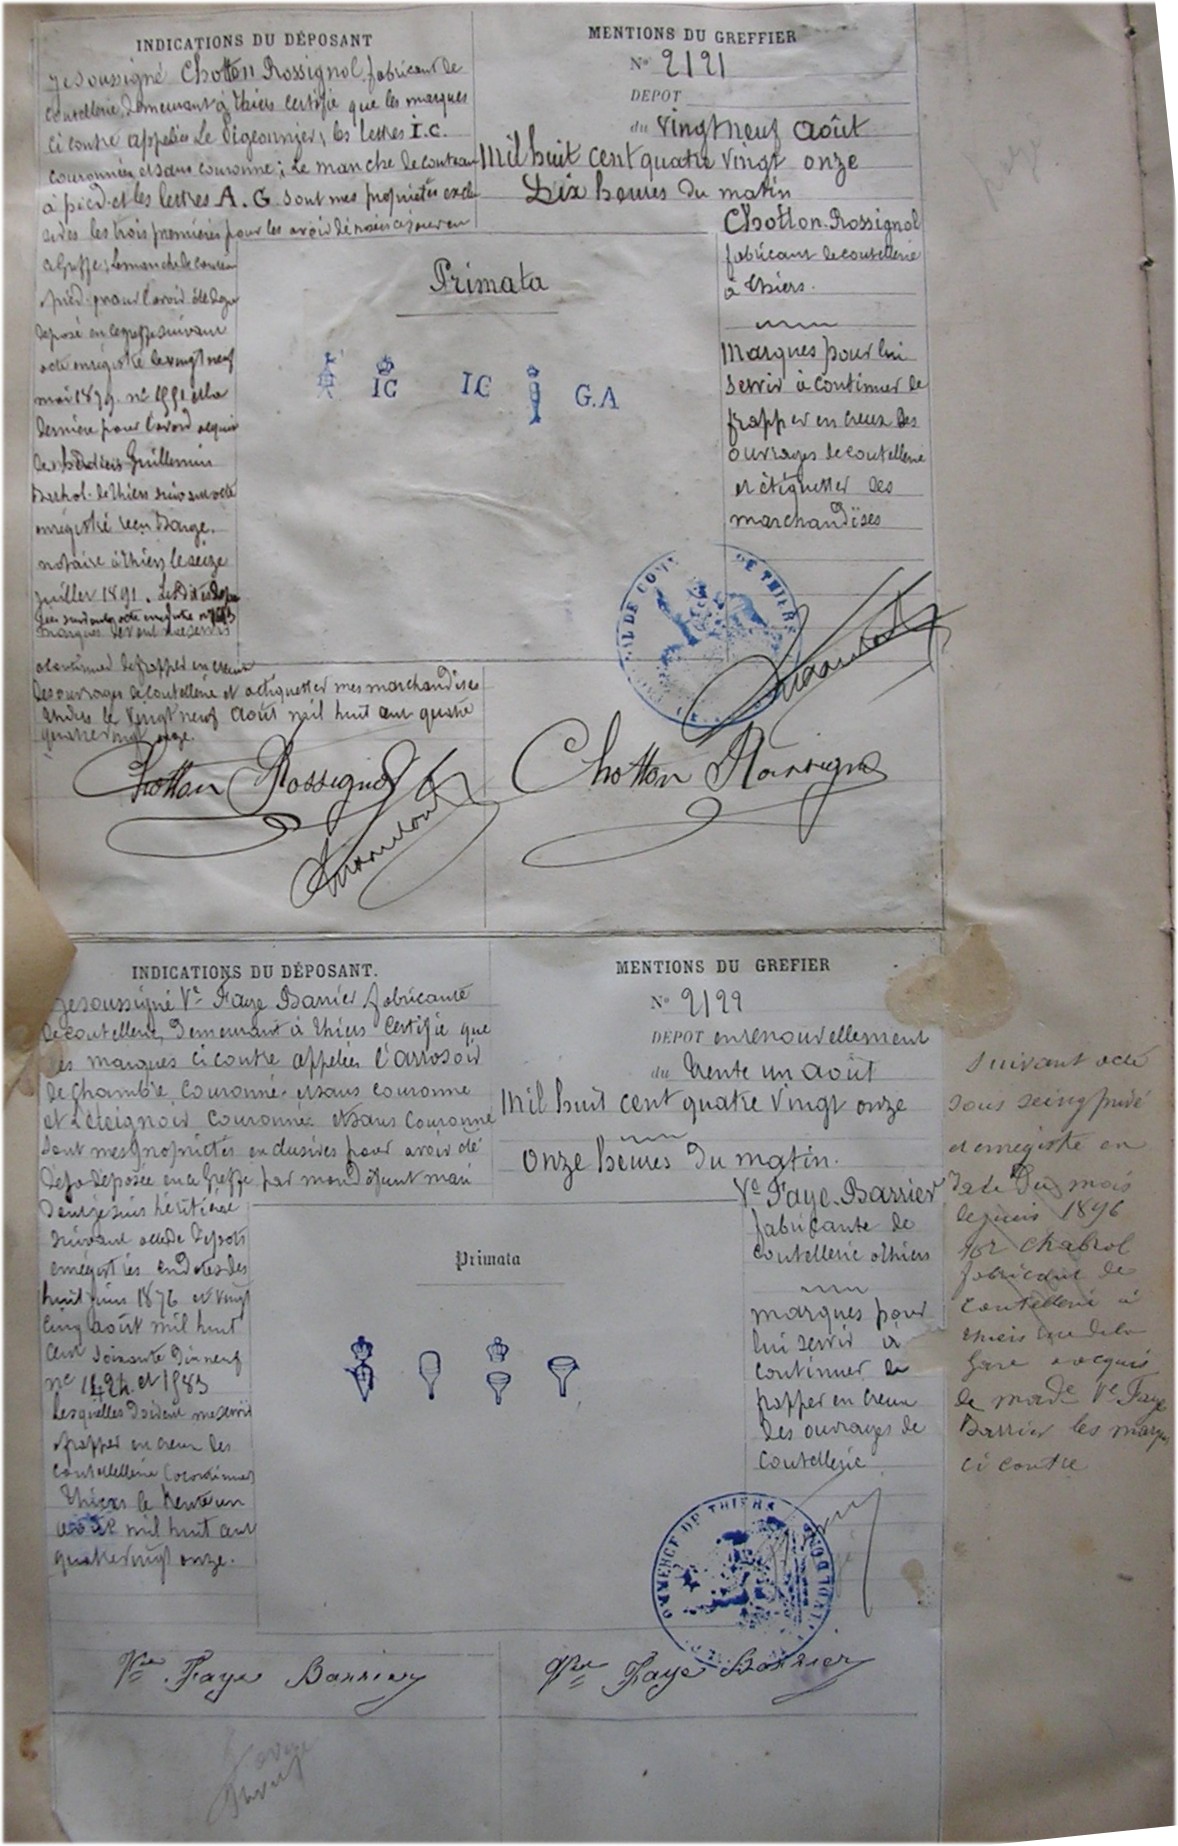 INDICATIONS DU DÉPOSANT
Je soussigné Chotton Rossignol fabricant de
coutellerie, demeurant à Thiers certifie que les marques
ci contre appelées Le Pigeonnier, les lettres I.C.
couronnées et sans couronne; Le manche de couteau
à pied et les lettres A.G sont mes propriétés exclu
sives les trois premières pour les avoir déposées ce jour en
ce Greffe; Le manche de couteau
à pied pour l'avoir été déjà
déposé en ce greffe suivant
acte enregistré le vingt neuf
mai 1879 nº 1991 et la
dernière pour l'avoir acquis
des héritiers Guillemin
de Thiers suivant acte
enregistré reçu Barge,
notaire à Thiers le seize
juillet 1891.
marques devant me servir
à continuer de frapper en creux
des ouvrages de coutellerie et à étiquetter mes marchandises
Thiers le Vingt neuf Août mil huit cent quatre
quatre vingt onze.
Chotton Rossignol
MENTIONS DU GREFFIER
Nº 2121
DEPOT
du Vingt neuf Août
Mil huit cent quatre vingt onze
Dix heures du matin
Chotton-Rossignol
fabricant de coutellerie
à Thiers.
Marques pour lui
servir à continuer de
frapper en creux des
ouvrages de coutellerie
et étiquetter des
marchandises
Primata
IC IC G.A
DE THIERS
Chotton Rossignol
INDICATIONS DU DÉPOSANT.
Je soussigné Vve Faye Barrier fabricante
de coutellerie, demeurant à Thiers certifie que
les marques ci contre appelées l'arrosoir
de chambre couronné et sans couronne
et couronnée et sans couronne
sont mes propriétés exclusives pour avoir été
déjà déposée en ce Greffe par mon défunt mari
dont je suis héritière
suivant acte de dépots
enregistrés en dates des
huit juin 1876 et vingt
cinq août mil huit
cent soixante dix neuf
nº 1424 et 1983
Lesquelles doivent me servir
à frapper en creux des
Thiers le trente un
août mil huit cent
quatre vingt onze.
Vve Faye Barrier
MENTIONS DU GREFIER
Nº 2122
DEPOT en renouvellement
du Trente un août
Mil huit cent quatre vingt onze
Onze heures du matin.
Ve Faye-Barrier
fabricante de
coutellerie à Thiers
marques pour
lui servir à
continuer de
frapper en creux
des ouvrages de
coutellerie
Primata
COMMERCE DE THIERS
Vve Faye Barrier
Suivant acte
sous seing privé
et enregistré en
date du mois
de juin 1896
Mr Chabrol
fabricant de
coutellerie à
Thiers rue de la
Gare a acquis
de made Ve Faye
Barrier les marques
ci contre